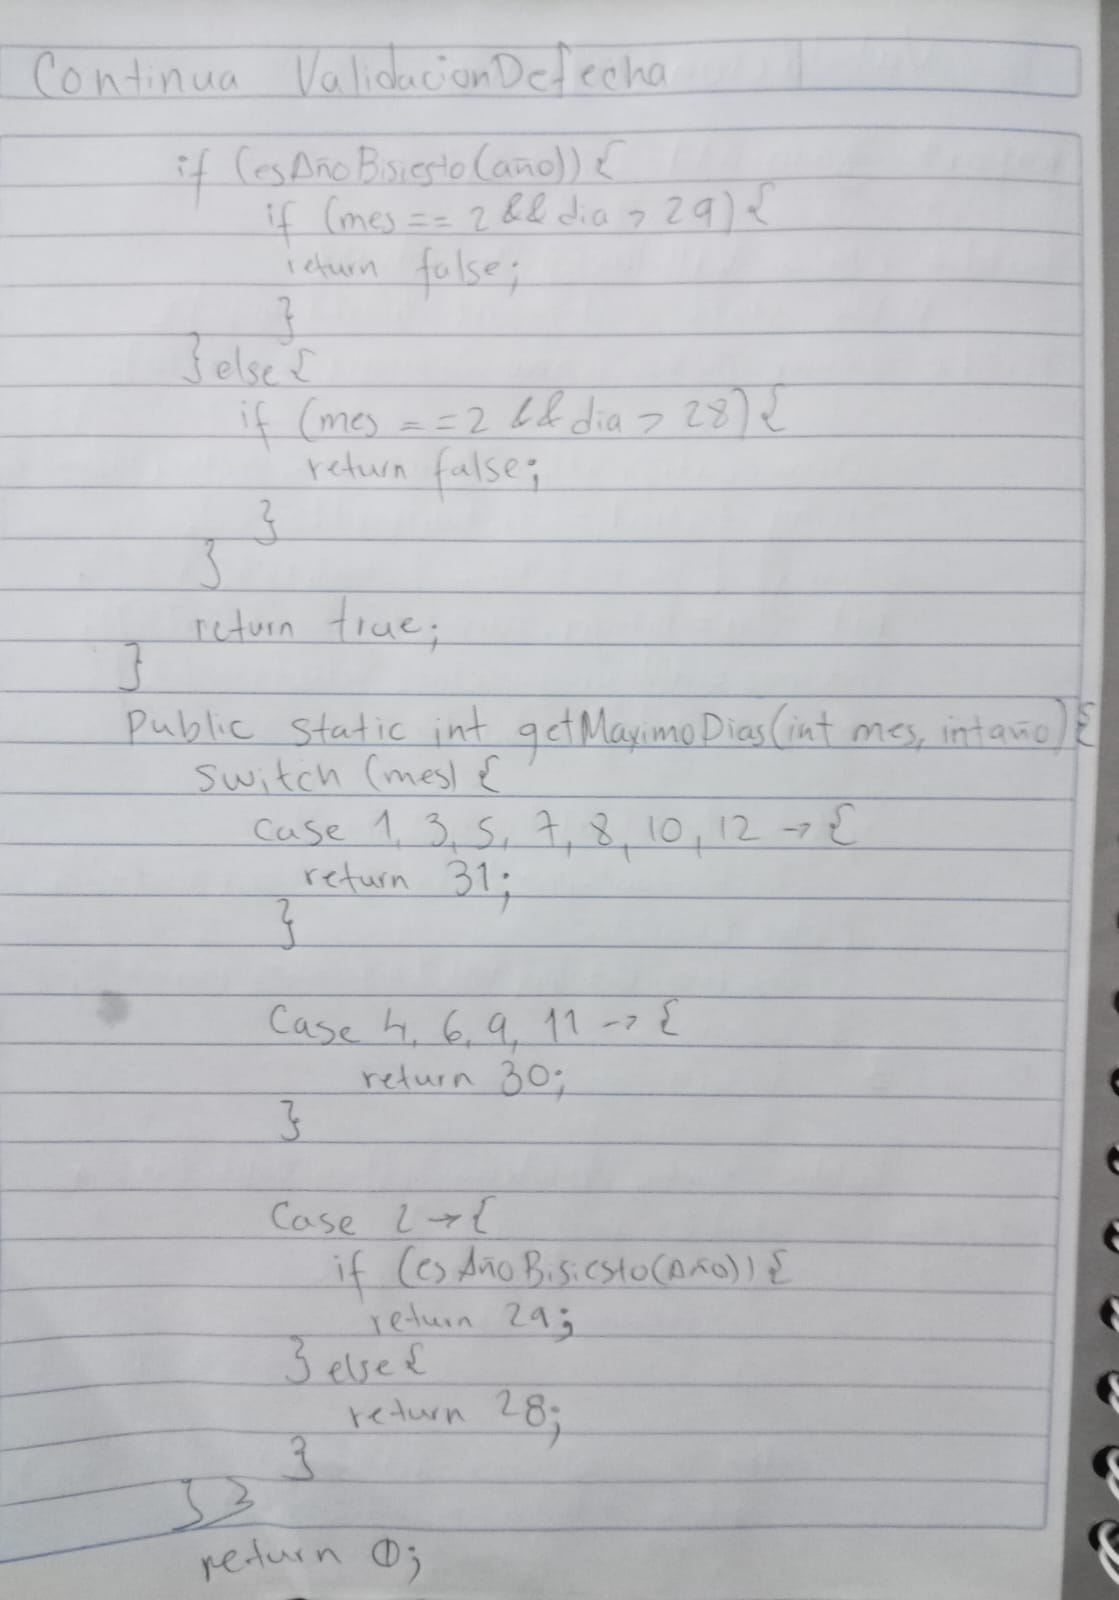 Continua ValidacionDefecha
if (esAñoBisiesto(año)) {
if (mes == 2 && dia > 29) {
return false;
}
} else {
if (mes == 2 && dia > 28) {
return false;
}
}
return true;
}
Public static int getMaximoDias(int mes, int año) {
switch (mes) {
case 1, 3, 5, 7, 8, 10, 12 -> {
return 31;
}
Case 4, 6, 9, 11 -> {
return 30;
}
Case 2 -> {
if (esAñoBisiesto(Año)) {
return 29;
} else {
return 28;
}
} }
return 0;